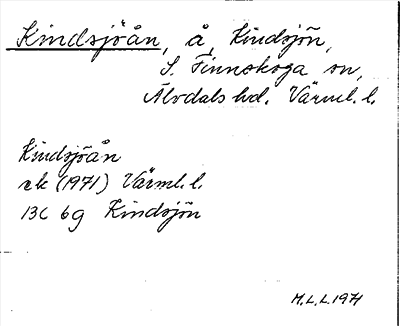 Kindsjöån, å, Kindsjön,
S. Finnskoga sn,
Älvdals hd. Värml. l.
Kindsjöån
ek (1971) Värml. l.
13C 6g Kindsjön
M.L.L. 1971